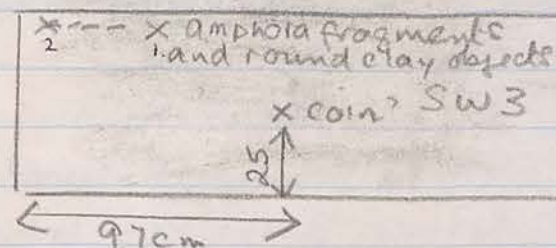 x--- x amphora fragments
2 1. and round clay objects
x coin? SW3
25
97cm